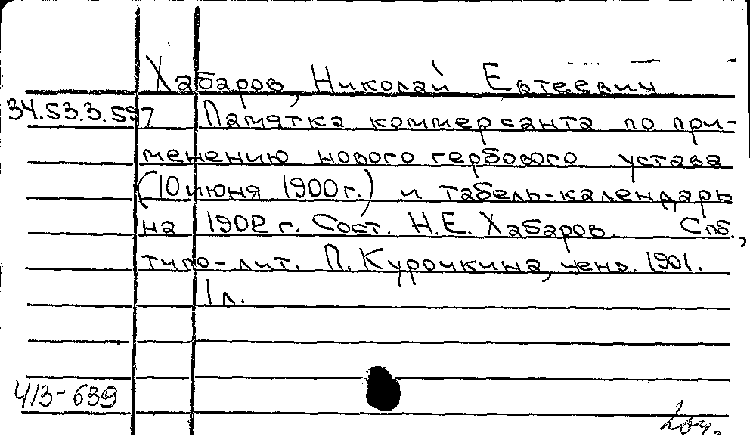 Хабаров, Николай Евтеевич
34.53.3.597 Памятка коммерсанта по при-
менению нового гербового устава
(10 июня 1900 г.) и табель-календарь
на 1902 г. Сост. Н.Е. Хабаров. Спб.,
типо-лит. П. Курочкина, ценз. 1901.
1 л.
413-639